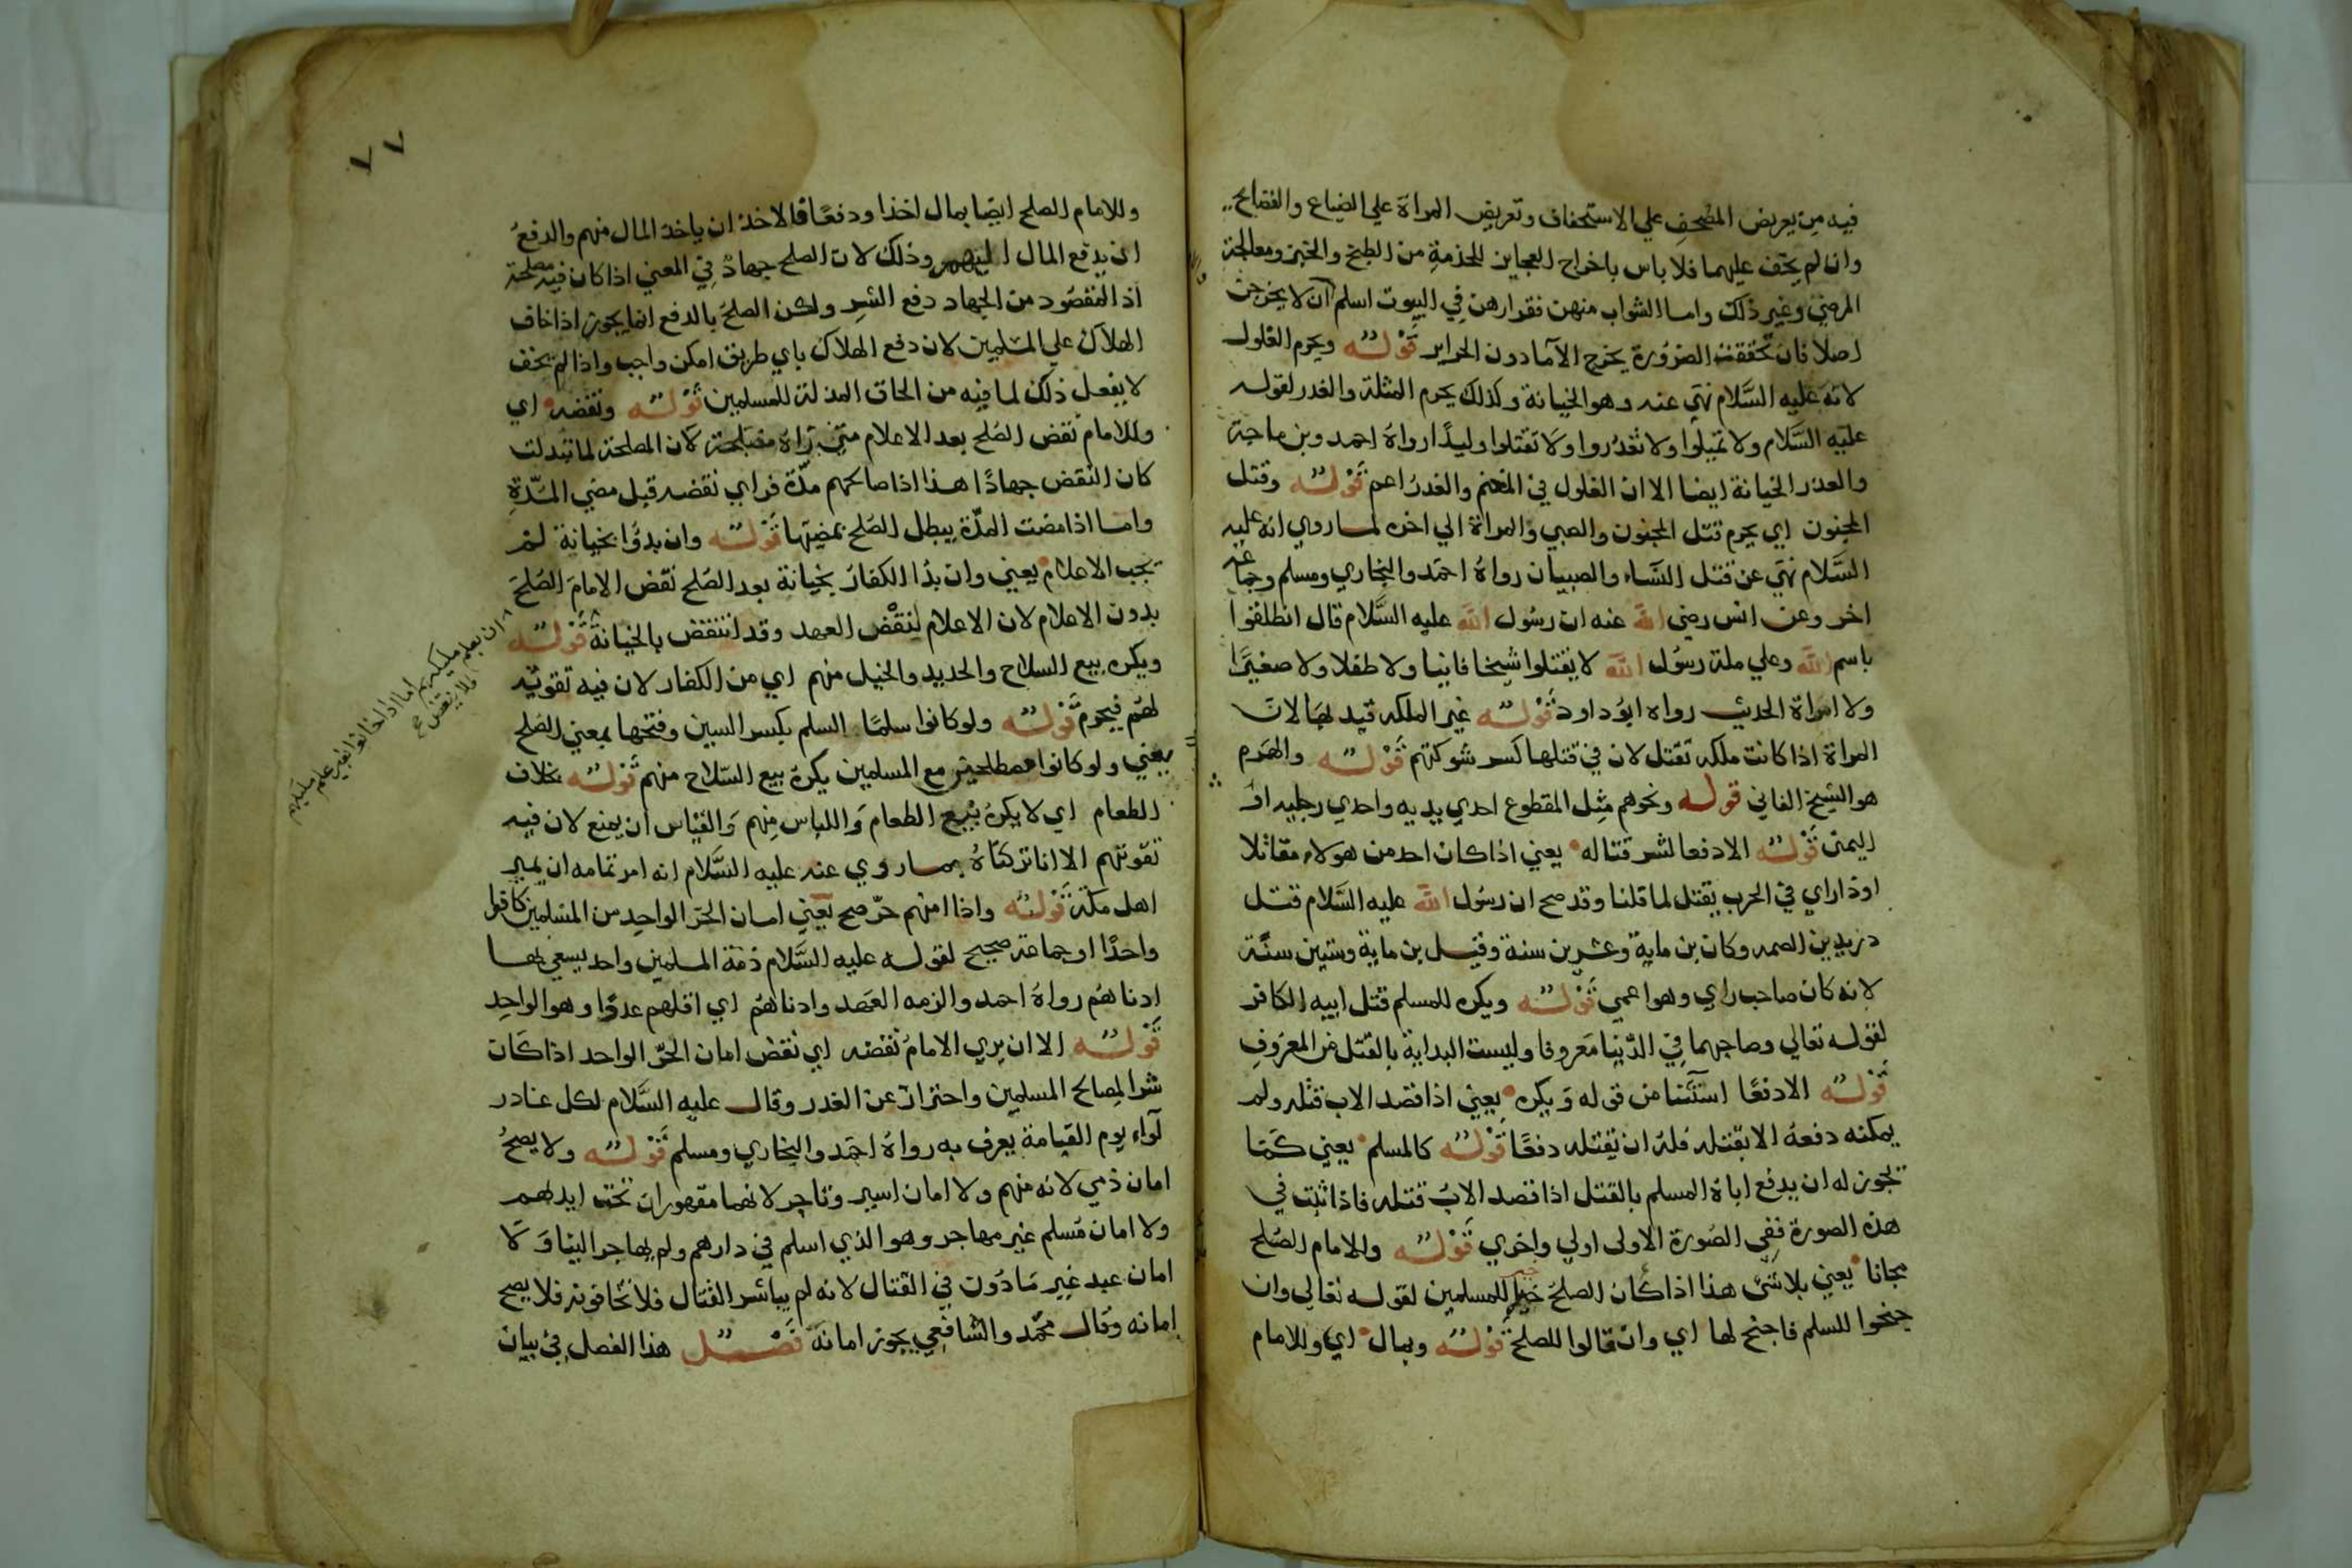 فيه من تعريض المصحف علي الاستخفاف وتعريض المراة علي الضياع والفضايح
وان لم يخف عليهما فلا باس باخراج العجايز للخدمة من الطبخ والخبز ومعالجة
المرضي وغير ذلك واما الشواب منهن فقرارهن في البيوت اسلم لان لا يخرجن
اصلا فان تحققت الضرورة يخرج الآما دون الحراير قوله ويحرم الغلول
لانه عليه السلام نهي عنه وهو الخيانة وكذلك يحرم المثلة والغدر لقوله
عليه السلام ولا تمثلوا ولا تغدروا ولا تقتلوا وليدا رواه احمد وبن ماجة
والغدر الخيانة ايضا الا ان الغلول في المغنم والغدر اعم قوله وقتل
المجنون اي يحرم قتل المجنون والصبي والمراة الي اخره لما روي انه عليه
السلام نهي عن قتل النساء والصبيان رواه احمد والبخاري ومسلم وجماعة
اخر وعن انس رضي الله عنه ان رسول الله عليه السلام قال انطلقوا
باسم الله وعلي ملة رسول الله لا يقتلوا شيخا فانيا ولا طفلا ولا صغيرا
ولا امراة الحديث رواه ابو داود قوله غير الملكه قيد لها لان
المراة اذا كانت ملكه تقتل لان في قتلها كسر شوكتهم قوله والهرم
هو الشيخ الفاني قوله ونحوهم مثل المقطوع احدي يديه واحدي رجليه او
اليمنى قوله الا دفعا لشر قتاله يعني اذا كان احد من هولاء مقاتلا
اوذا راي في الحرب يقتل لما قلنا وقد صح ان رسول الله عليه السلام قتل
دريد بن الصمه وكان بن ماية وعشرين سنة وقيل بن ماية وستين سنة
لانه كان صاحب راي وهو اعمي قوله ويكره للمسلم قتل ابيه الكافر
لقوله تعالي وصاحبهما في الدنيا معروفا وليست البداية بالقتل من المعروف
قوله الا دفعا استثنا من قوله ويكره يعني اذا قصد الاب قتله ولم
يمكنه دفعه الا بقتله فله ان يقتله دفعا قوله كالمسلم يعني كما
تجوز له ان يدفع اباه المسلم بالقتل اذا قصد الاب قتله فاذا ثبت في
هذه الصورة ففي الصورة الاولى اولي واحري قوله وللامام الصلح
مجانا يعني بلا شي هذا اذا كان الصلح خير للمسلمين لقوله تعالي وان
جنحوا للسلم فاجنح لها اي وان قالوا للصلح قوله وبمال اي وللامام
٧٧
وللامام الصلح ايضا بمال اخذا ودفعا فالاخذ ان ياخذ المال منهم والدفع
ان يدفع المال اليهم وذلك لان الصلح جهاد في المعني اذا كان فيه مصلحة
اذ المقصود من الجهاد دفع الشر ولكن الصلح بالدفع انما يجوز اذا خاف
الهلاك علي المسلمين لان دفع الهلاك باي طريق امكن واجب واذا لم يخف
لا يفعل ذلك لما فيه من الحاق المذلة للمسلمين قوله ونقضه اي
وللامام نقض الصلح بعد الاعلام متي رآه مصلحة لان المصلحة لما تبدلت
كان النقض جهادا هذا اذا صالحهم مدة فراي نقضه قبل مضي المدة
واما اذا مضت المدة يبطل الصلح بمضيها قوله وان بدوا بخيانة لم
تجب الاعلام يعني وان بدا الكفار بخيانة بعد الصلح نقض الامام الصلح
بدون الاعلام لان الاعلام لنقض العهد وقد انتقض بالخيانة قوله
ويكره بيع السلاح والحديد والخيل منهم اي من الكفار لان فيه تقوية
لهم فيحرم قوله ولو كانوا سلما السلم بكسر السين وفتحها بمعني الصلح
يعني ولو كانوا مصطلحين مع المسلمين يكره بيع السلاح منهم قوله بخلاف
الطعام اي لا يكره بيع الطعام واللباس منهم والقياس ان يمنع لان فيه
تقوتهم الا انا تركناه بما روي عنه عليه السلام انه امر ثمامه ان يمير
اهل مكة قوله واذا امنهم حر صح يعني امان الحر الواحد من المسلمين كافرا
واحدا او جماعة صحيح لقوله عليه السلام ذمة المسلمين واحد يسعي بها
ادناهم رواه احمد والزمه العهد وادناهم اي اقلهم عددا وهو الواحد
قوله الا ان يري الامام نقضه اي نقض امان الحر الواحد اذا كان
شرا لمصالح المسلمين واحترازا عن الغدر وقال عليه السلام لكل غادر
لواء يوم القيامة يعرف به رواه احمد والبخاري ومسلم قوله ولا يصح
امان ذمي لانه منهم ولا امان اسير وتاجر لانهما مقهوران تحت ايديهم
ولا امان مسلم غير مهاجر وهو الذي اسلم في دارهم ولم يهاجر الينا ولا
امان عبد غير ماذون في القتال لانه لم يباشر القتال فلا تخافونه فلا يصح
امانه وقال محمد والشافعي يجوز امانه فصل هذا الفصل في بيان
ان بعلم مليكهم اما اذا خانوا بغير علم مليكهم
فلا ينقض صح